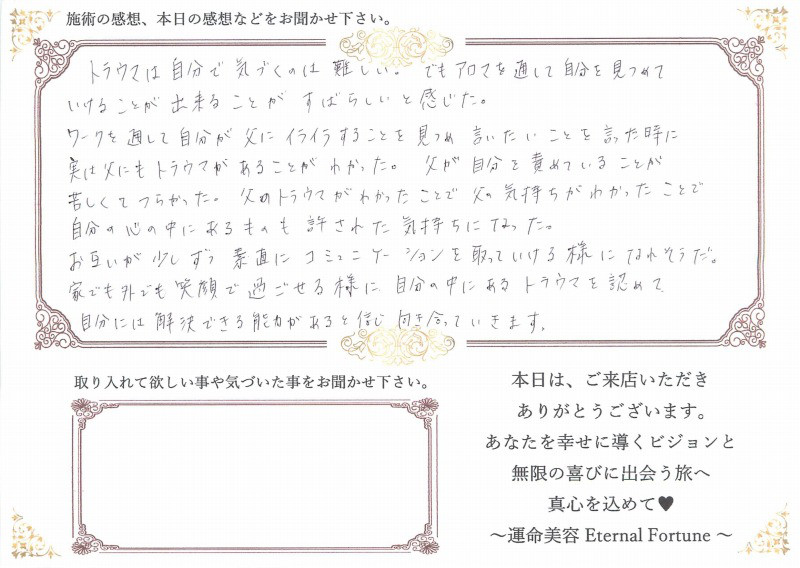 施術の感想、本日の感想などをお聞かせ下さい。
トラウマは自分で気づくのは難しい。でもアロマを通して自分を見つめて
いけることが出来ることがすばらしいと感じた。
ワークを通して自分が父にイライラすることを見つめ言いたいことを言った時に
実は父にもトラウマがあることがわかった。父が自分を責めていることが
苦しくてつらかった。父のトラウマがわかったことで父の気持ちがわかったことで
自分の心の中にあるものも許された気持ちになった。
お互いが少しずつ素直にコミュニケーションを取っていける様になれそうだ。
家でも外でも笑顔で過ごせる様に自分の中にあるトラウマを認めて
自分には解決できる能力があると信じ向き合っていきます。
取り入れて欲しい事や気づいた事をお聞かせ下さい。
本日は、ご来店いただき
ありがとうございます。
あなたを幸せに導くビジョンと
無限の喜びに出会う旅へ
真心を込めて♥
～運命美容 Eternal Fortune ～